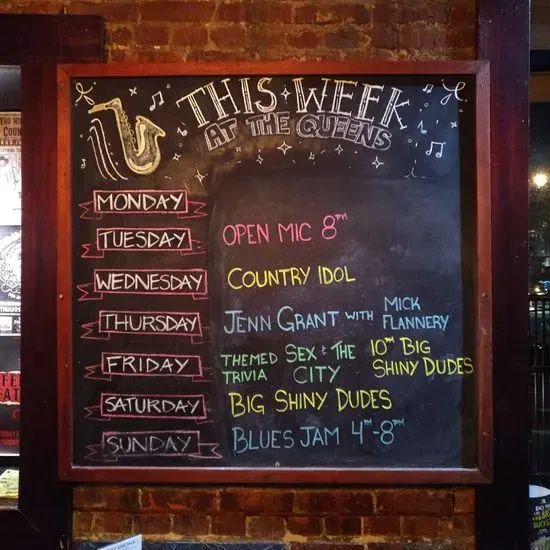 THIS WEEK
AT THE QUEENS
MONDAY
TUESDAY OPEN MIC 8PM
WEDNESDAY COUNTRY IDOL
THURSDAY JENN GRANT WITH MICK FLANNERY
FRIDAY THEMED TRIVIA SEX & THE CITY 10PM BIG SHINY DUDES
SATURDAY BIG SHINY DUDES
SUNDAY BLUES JAM 4PM-8PM